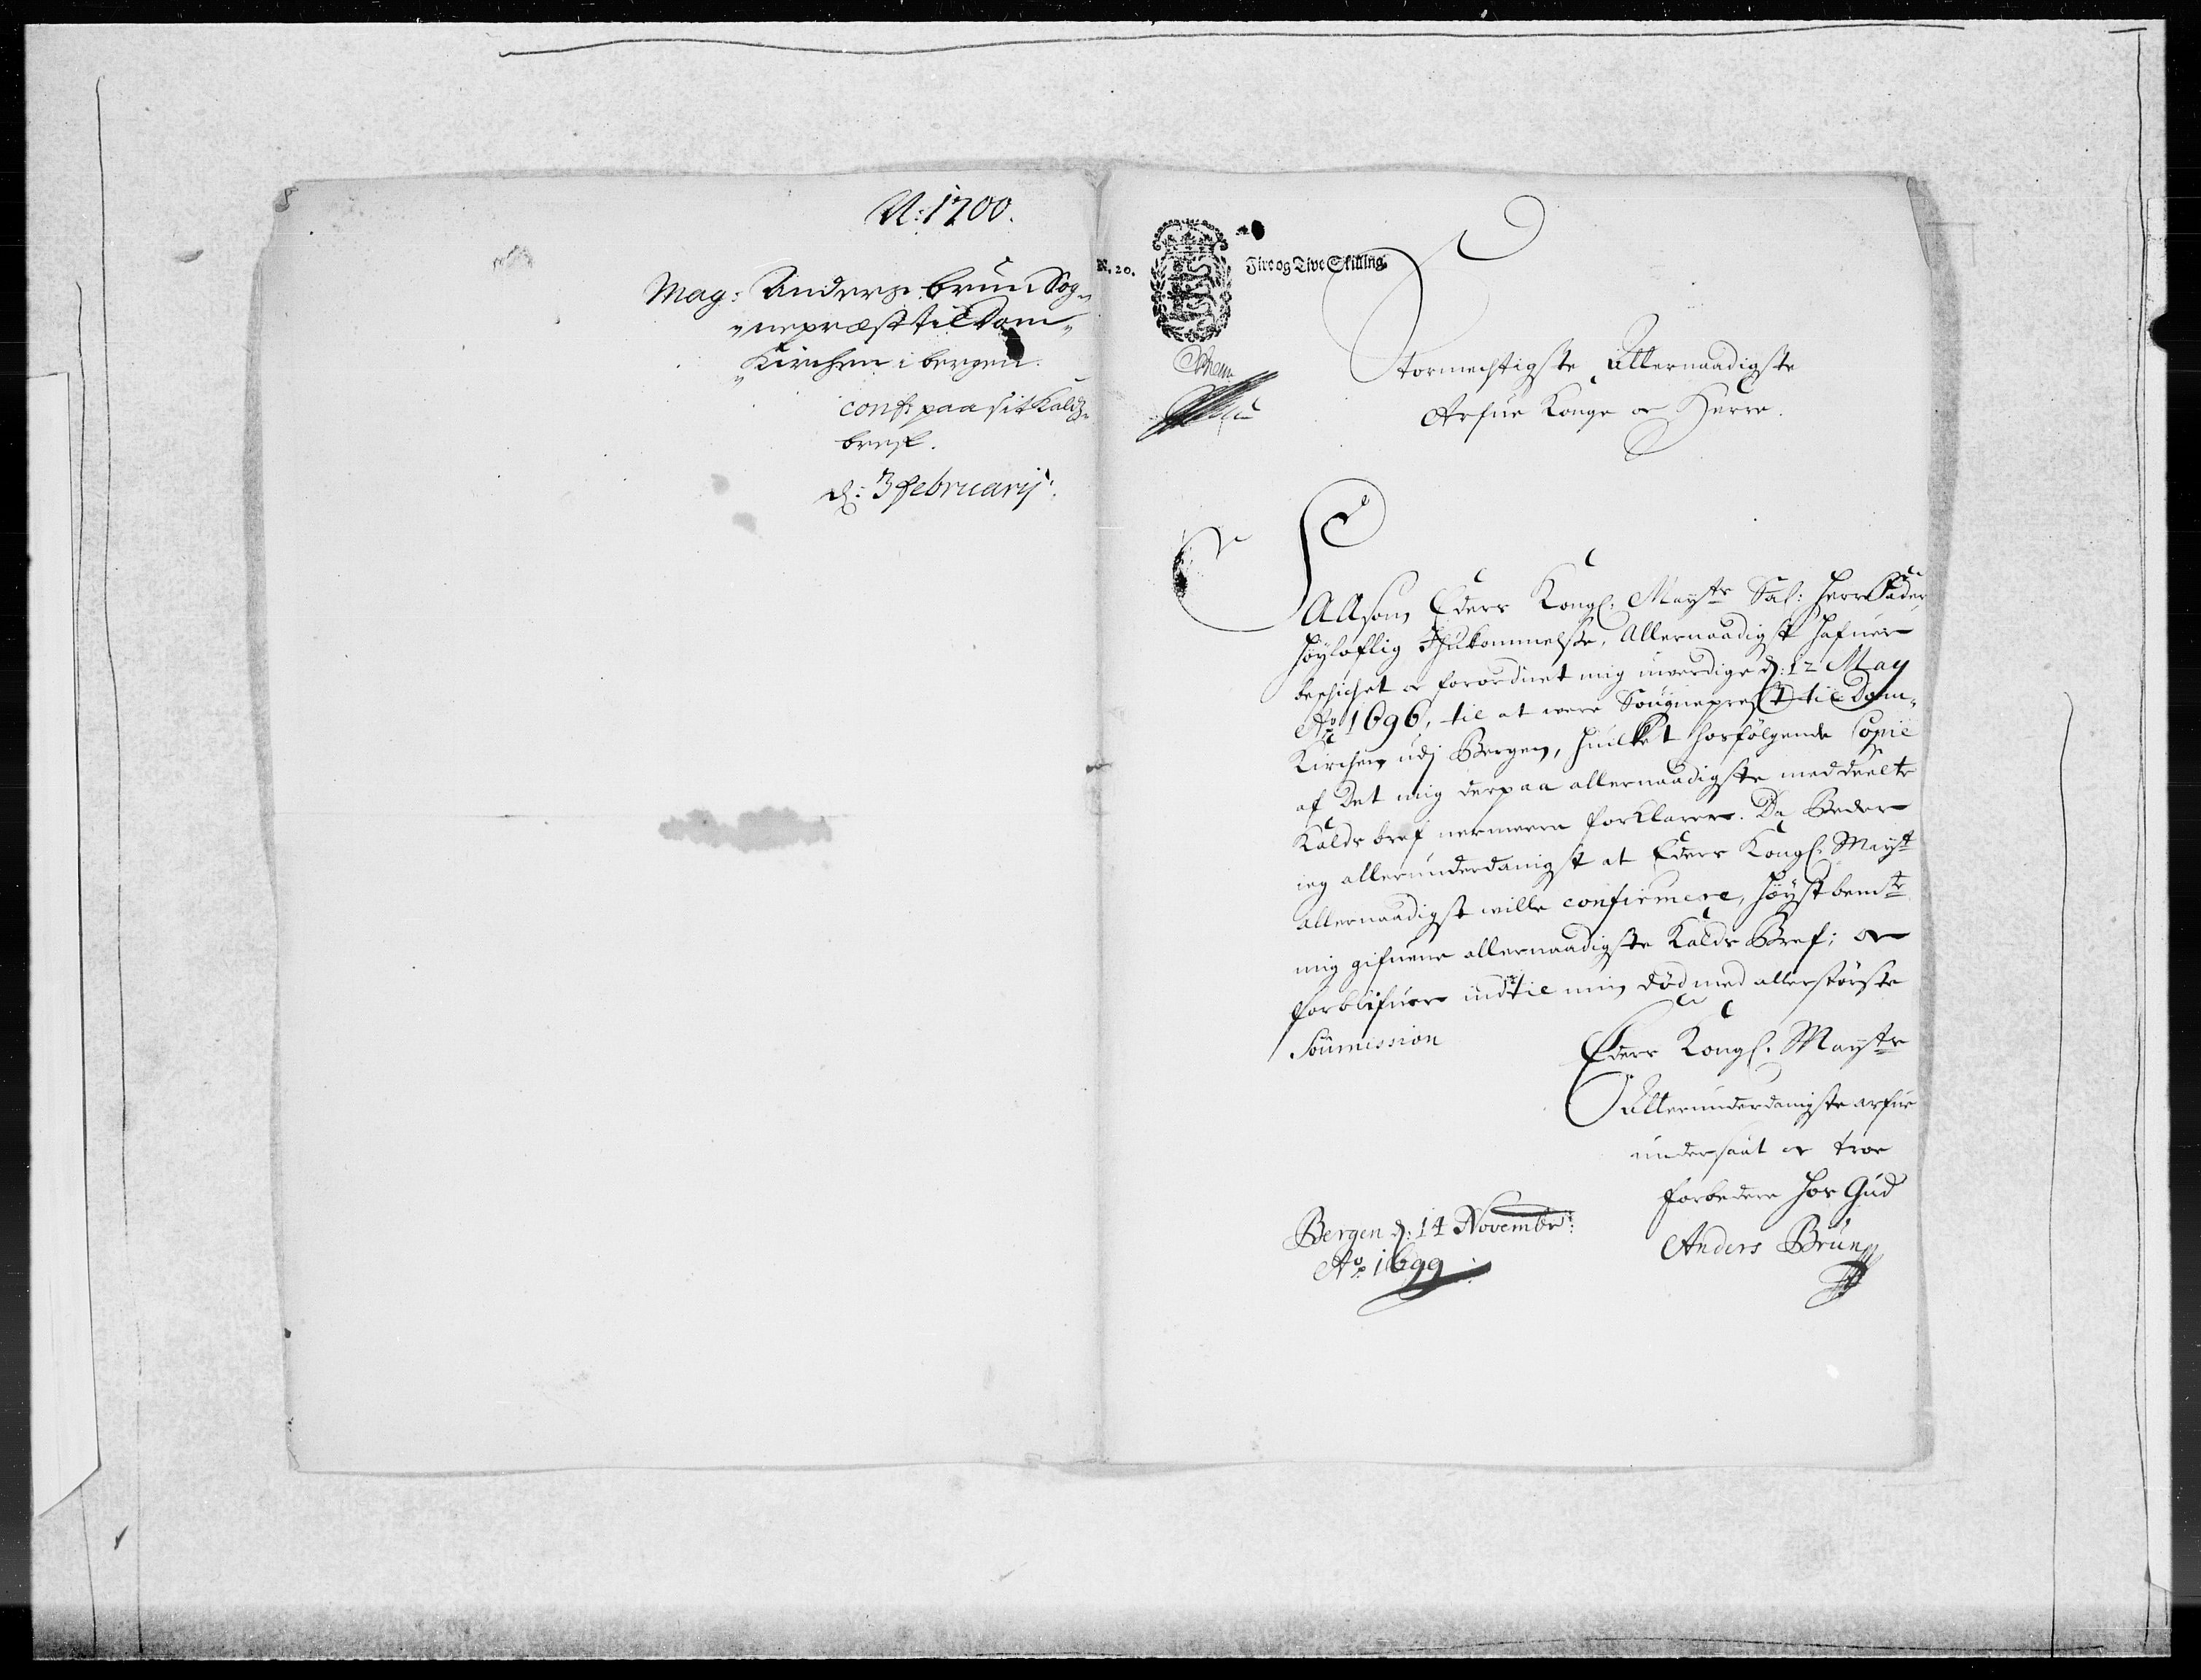 8
A: 1700.
Mag: Anders brun Sog„
„nepræst til Dom„
„Kirchen i bergen.
conf: paa sit Kaldz„
bref.
d: 3 februarij.
N. 20.
Fire og Tive Skilling.
Stormechtigste Allernaadigste
Arfue Konge oc Herre.
Allsom Eders Kongl. Mayts Sal: Herr Fader
høylofflig Ihukommelse, Allernaadigst hafuer
beschichet oc forordnet mig uverdige d: 12 May
Ao 1696, til at were Sougneprest til Dom„
Kirchen udj Bergen, huilket hosfølgende Copie
af Det mig derpaa allernaadigste meddeelte
Kaldsbref nermeere forklarer. Da Beder
ieg allerunderdanigst at Eders Kongl. Mayt
allernaadigst wille confirmere, høystbemte
mig gifuene allernaadigste Kalds Bref; oc
forblifuer indtil min død med allerstørste
Soumission
Eders Kongl. Mayts
Allerunderdanigste arfue
undersaat oc troe
forbedere hos Gud
Anders Brun
Bergen d: 14 Novembr:
Ao 1699